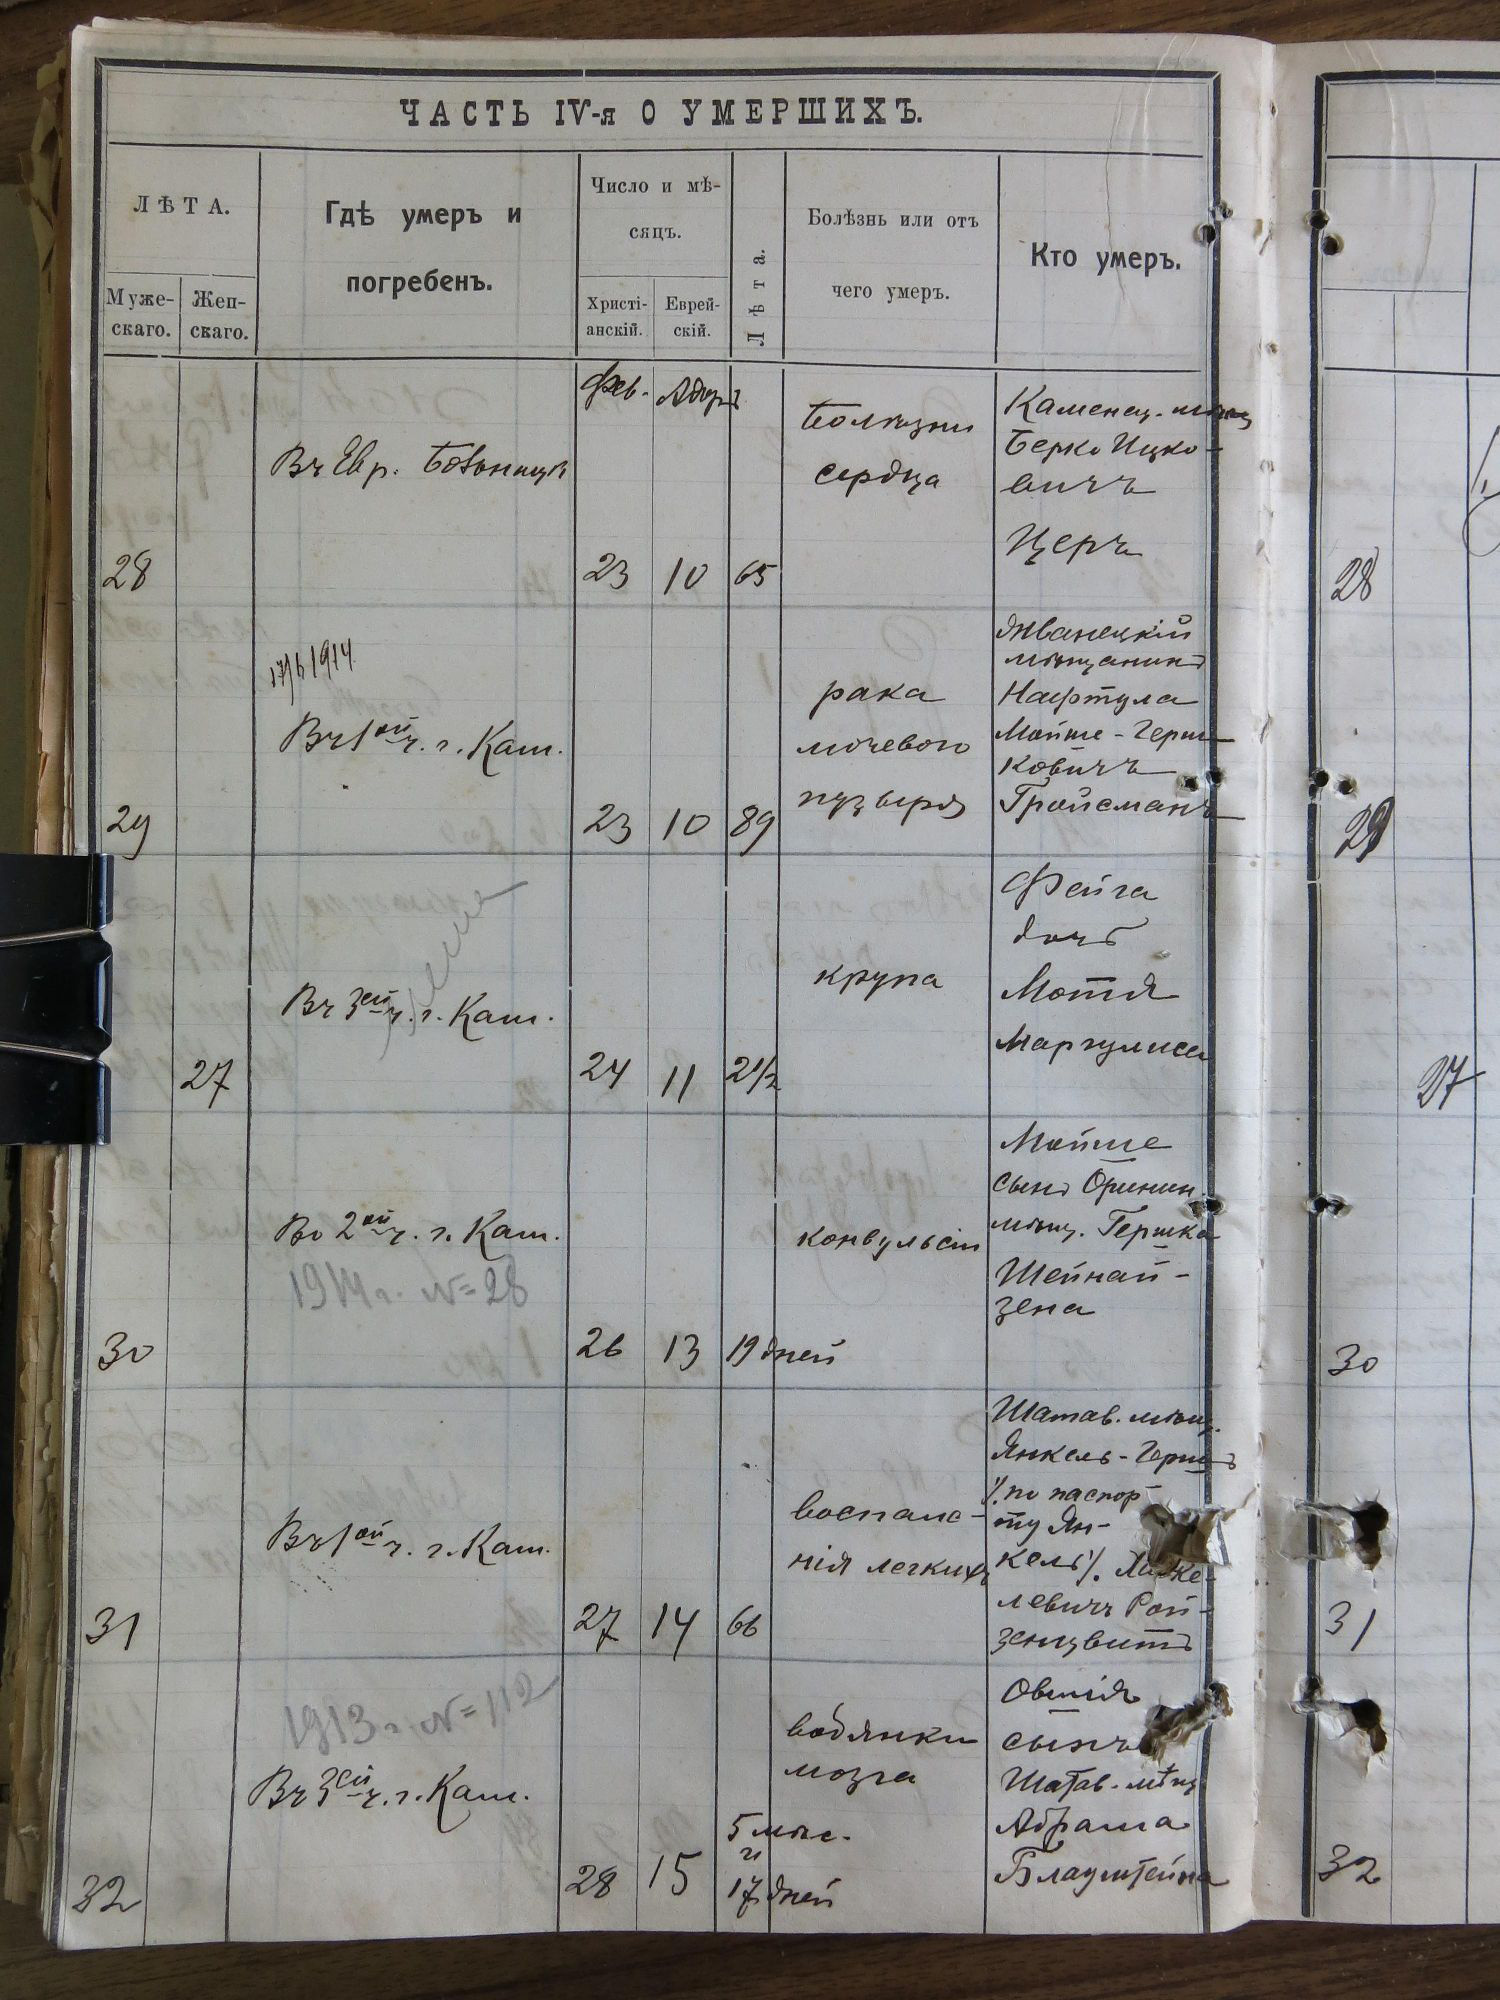 ЧАСТЬ IV-я О УМЕРШИХЪ.
ЛѢТА.
Муже-
скаго.
Жен-
скаго.
Гдѣ умеръ и
погребенъ.
Число и мѣ-
сяцъ.
Христі-
анскій.
Еврей-
скій.
Лѣта.
Болѣзнь или отъ
чего умеръ.
Кто умеръ.
Фев. Адаръ
28
Въ Евр. Больницѣ
23 10 65
болѣзни
сердца
Каменец. мѣщ
Берко Ицко-
вичъ
Церъ
28
29
17/6 1914
Въ 1ой ч. г. Кам.
23 10 89
рака
мочевого
пузыря
Жванецкій
мѣщанинъ
Нафтула
Мойше-Герш
ковичъ
Гройсманъ
29
27
Въ 3ей ч. г. Кам.
24 11 2 1/2
крупа
Фейга
дочь
Мотя
Маргулиса
27
30
Во 2ой ч. г. Кам.
1914 г. N=28
26 13 19 дней
конвульсіи
Мойше
сынъ Оринин.
мѣщ. Гершка
Шейнай-
зена
30
31
Въ 1ой ч. г. Кам.
27 14 66
воспале-
нія легкихъ
Шатав. мѣщ.
Янкель-Гершъ
/. по паспор-
ту Ян-
кель/.
левичъ Рой-
зенцвитъ
31
1913 г. N=112
32
Въ 3ей ч. г. Кам.
28 15
5 мѣс.
и
17 дней
водянки
мозга
Овшія
сынъ
Шатав. мѣщ
Абрама
Блаумтейна
32